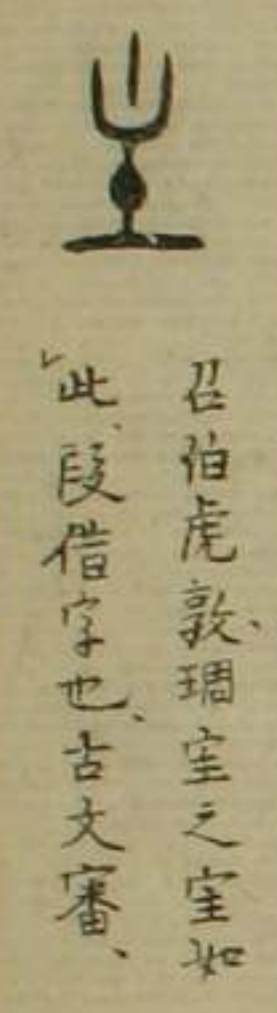 召伯虎敦、琱宔之宔如
此、叚借字也、古文審、